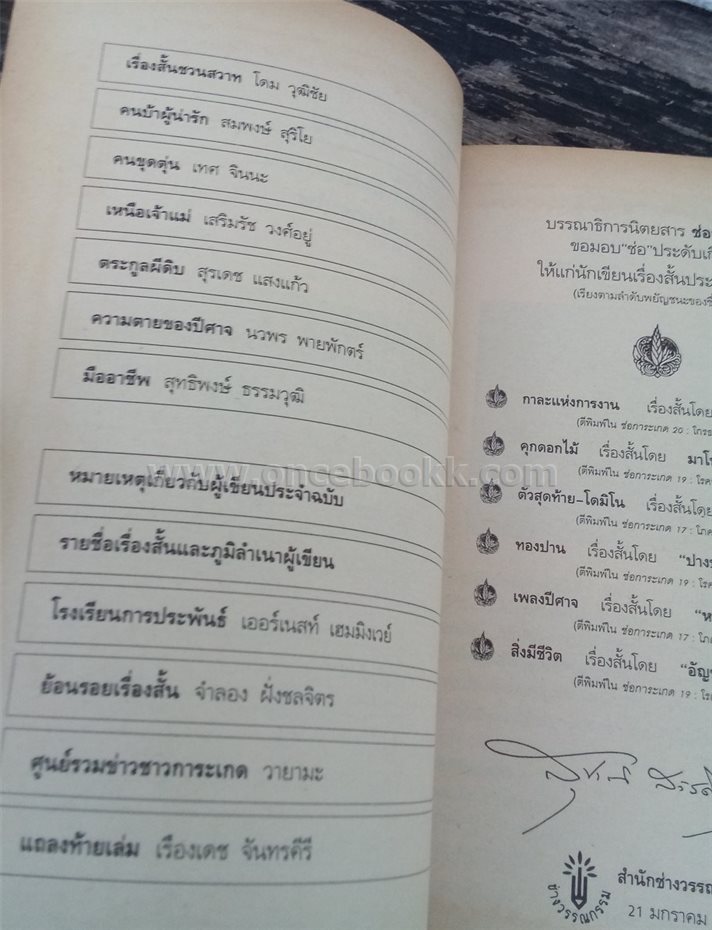 เรื่องสั้นชวนสวาท โดม วุฒิชัย
คนบ้าผู้น่ารัก สมพงษ์ สุริโย
คนขุดตุ่น เทศ จินนะ
เหนือเจ้าแม่ เสริมรัช วงศ์อยู่
ตระกูลผีดิบ สุรเดช แสงแก้ว
ความตายของปีศาจ นวพร พายพักตร์
มืออาชีพ สุทธิพงษ์ ธรรมวุฒิ
หมายเหตุเกี่ยวกับผู้เขียนประจำฉบับ
รายชื่อเรื่องสั้นและภูมิลำเนาผู้เขียน
โรงเรียนการประพันธ์ เออร์เนสท์ เฮมมิงเวย์
ย้อนรอยเรื่องสั้น จำลอง ฝั่งชลจิตร
ศูนย์รวมข่าวชาวการะเกด วายามะ
แถลงท้ายเล่ม เรืองเดช จันทรคีรี
www.oncebookk.com
บรรณาธิการนิตยสาร ช่อ
ขอมอบ"ช่อ"ประดับเกี
ให้แก่นักเขียนเรื่องสั้นประ
(เรียงตามลำดับพยัญชนะของชื่
กาละแห่งการงาน เรื่องสั้นโดย
(ตีพิมพ์ใน ช่อการะเกด 20 : โกรธ
คุกดอกไม้ เรื่องสั้นโดย มาโน
(ตีพิมพ์ใน ช่อการะเกด 19 : โรค
ตัวสุดท้าย-โดมิโน เรื่องสั้นโดย
(ตีพิมพ์ใน ช่อการะเกด 17 : โภค
ทองปาน เรื่องสั้นโดย "ปาง
(ตีพิมพ์ใน ช่อการะเกด 19 : โรค
เพลงปีศาจ เรื่องสั้นโดย "ห
(ตีพิมพ์ใน ช่อการะเกด 17 : โภ
สิ่งมีชีวิต เรื่องสั้นโดย "อัญ
(ตีพิมพ์ใน ช่อการะเกด 19 : โรค
ช่างวรรณกรรม
สำนักช่างวรรณ
21 มกราคม